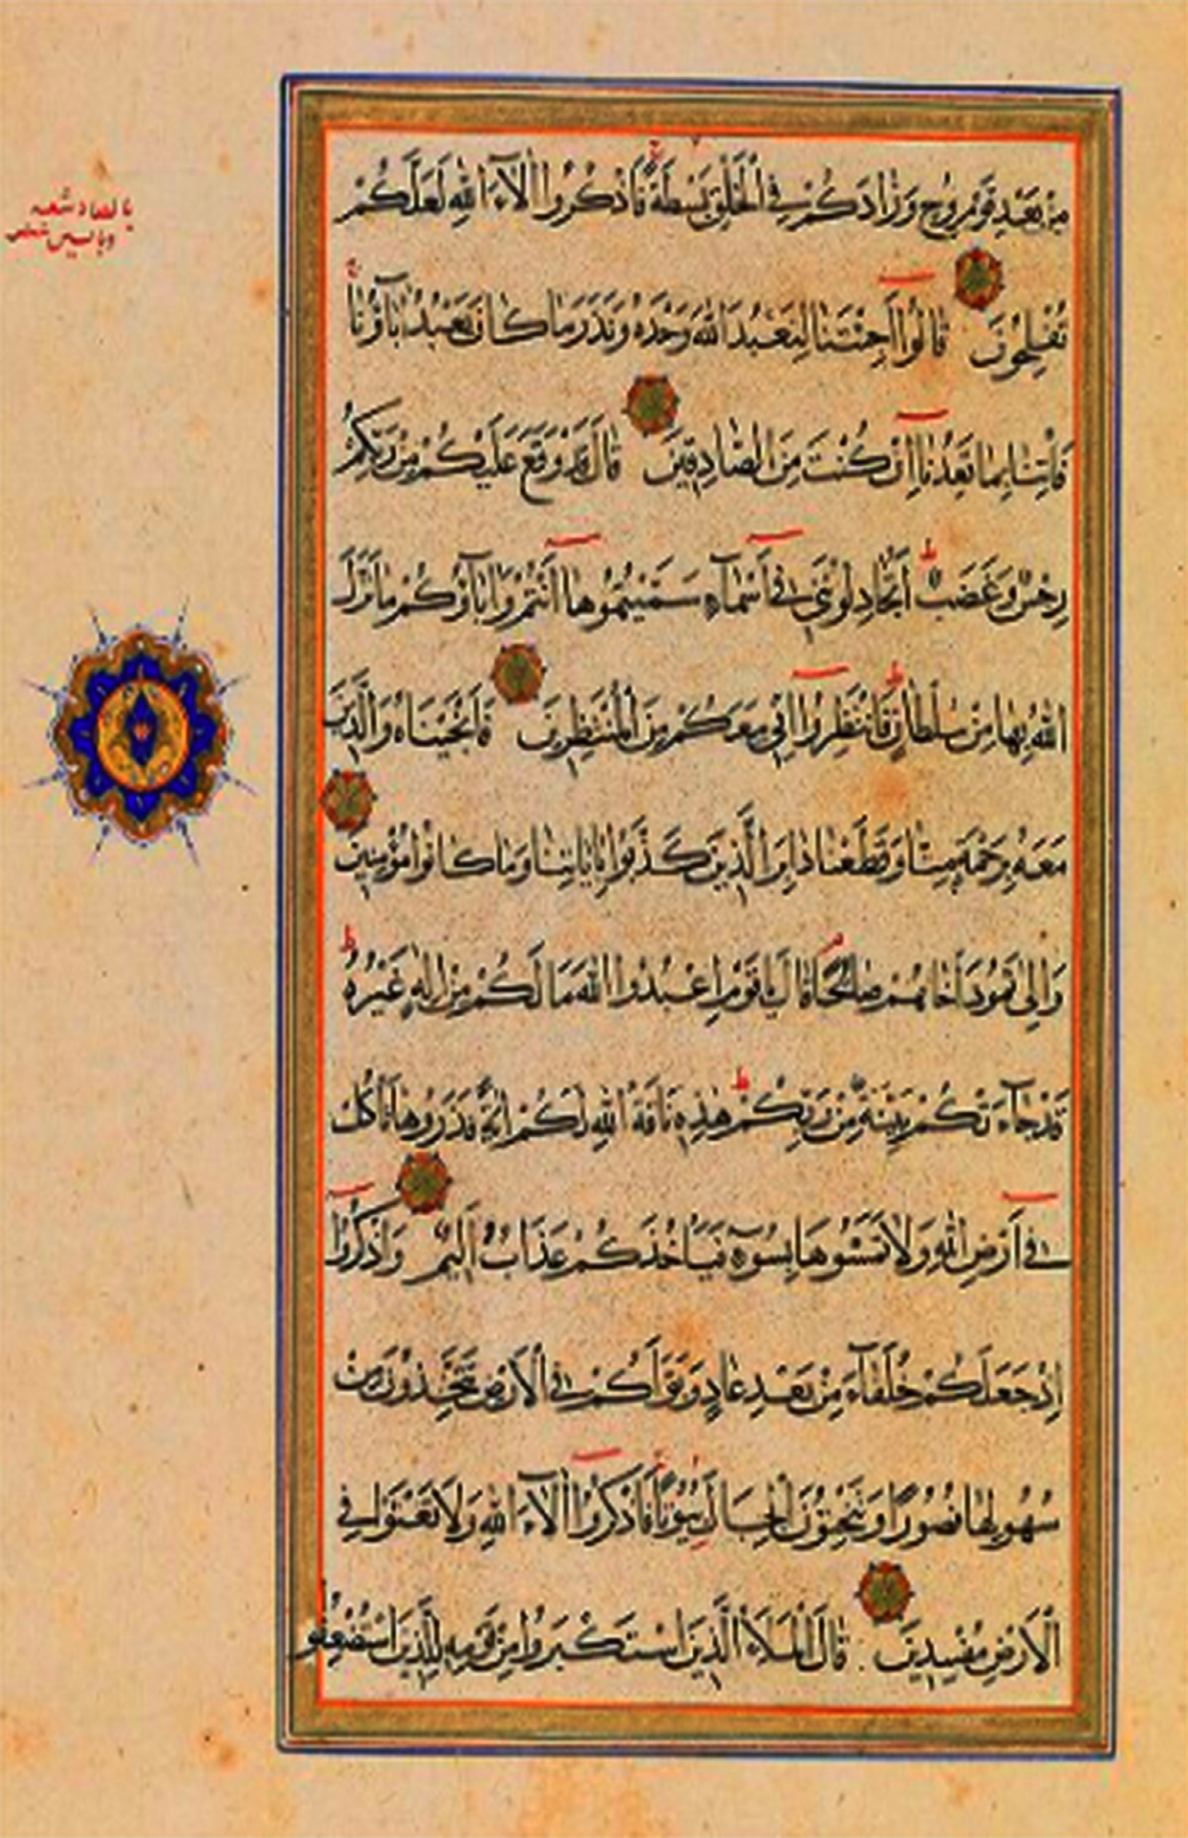 مِنْ بَعْدِ قَوْمِ نُوحٍ وَزَادَكُمْ فِي الْخَلْقِ بَسْطَةً فَاذْكُرُوا آلَاءَ اللهِ لَعَلَّكُمْ
تُفْلِحُونَ قَالُوا أَجِئْتَنَا لِنَعْبُدَ اللهَ وَحْدَهُ وَنَذَرَ مَا كَانَ يَعْبُدُ آبَاؤُنَا
فَأْتِنَا بِمَا تَعِدُنَا إِنْ كُنْتَ مِنَ الصَّادِقِينَ قَالَ قَدْ وَقَعَ عَلَيْكُمْ مِنْ رَبِّكُمْ
رِجْسٌ وَغَضَبٌ ط أَتُجَادِلُونَنِي فِي أَسْمَاءٍ سَمَّيْتُمُوهَا أَنْتُمْ وَآبَاؤُكُمْ مَا نَزَّلَ
اللهُ بِهَا مِنْ سُلْطَانٍ ط فَانْتَظِرُوا إِنِّي مَعَكُمْ مِنَ الْمُنْتَظِرِينَ فَأَنْجَيْنَاهُ وَالَّذِينَ
مَعَهُ بِرَحْمَةٍ مِنَّا وَقَطَعْنَا دَابِرَ الَّذِينَ كَذَّبُوا بِآيَاتِنَا وَمَا كَانُوا مُؤْمِنِينَ
وَإِلَى ثَمُودَ أَخَاهُمْ صَالِحًا قَالَ يَا قَوْمِ اعْبُدُوا اللهَ مَا لَكُمْ مِنْ إِلَهٍ غَيْرُهُ ط
قَدْ جَاءَتْكُمْ بَيِّنَةٌ مِنْ رَبِّكُمْ ط هَذِهِ نَاقَةُ اللهِ لَكُمْ آيَةً فَذَرُوهَا تَأْكُلْ
فِي أَرْضِ اللهِ وَلَا تَمَسُّوهَا بِسُوءٍ فَيَأْخُذَكُمْ عَذَابٌ أَلِيمٌ وَاذْكُرُوا
إِذْ جَعَلَكُمْ خُلَفَاءَ مِنْ بَعْدِ عَادٍ وَبَوَّأَكُمْ فِي الْأَرْضِ تَتَّخِذُونَ مِنْ
سُهُولِهَا قُصُورًا وَتَنْحِتُونَ الْجِبَالَ بُيُوتًا فَاذْكُرُوا آلَاءَ اللهِ وَلَا تَعْثَوْا فِي
الْأَرْضِ مُفْسِدِينَ قَالَ الْمَلَأُ الَّذِينَ اسْتَكْبَرُوا مِنْ قَوْمِهِ لِلَّذِينَ اسْتُضْعِفُوا
بالصاد شعبه
وبالسين حفص